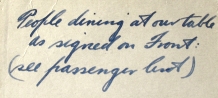 People dining at our table
as signed on Front:
(see passenger list)